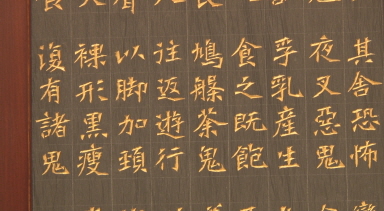 其舍恐怖
夜叉惡鬼
孚乳產生
食之既飽
鳩槃荼鬼
往返遊行
以脚加頸
裸形黑瘦
復有諸鬼